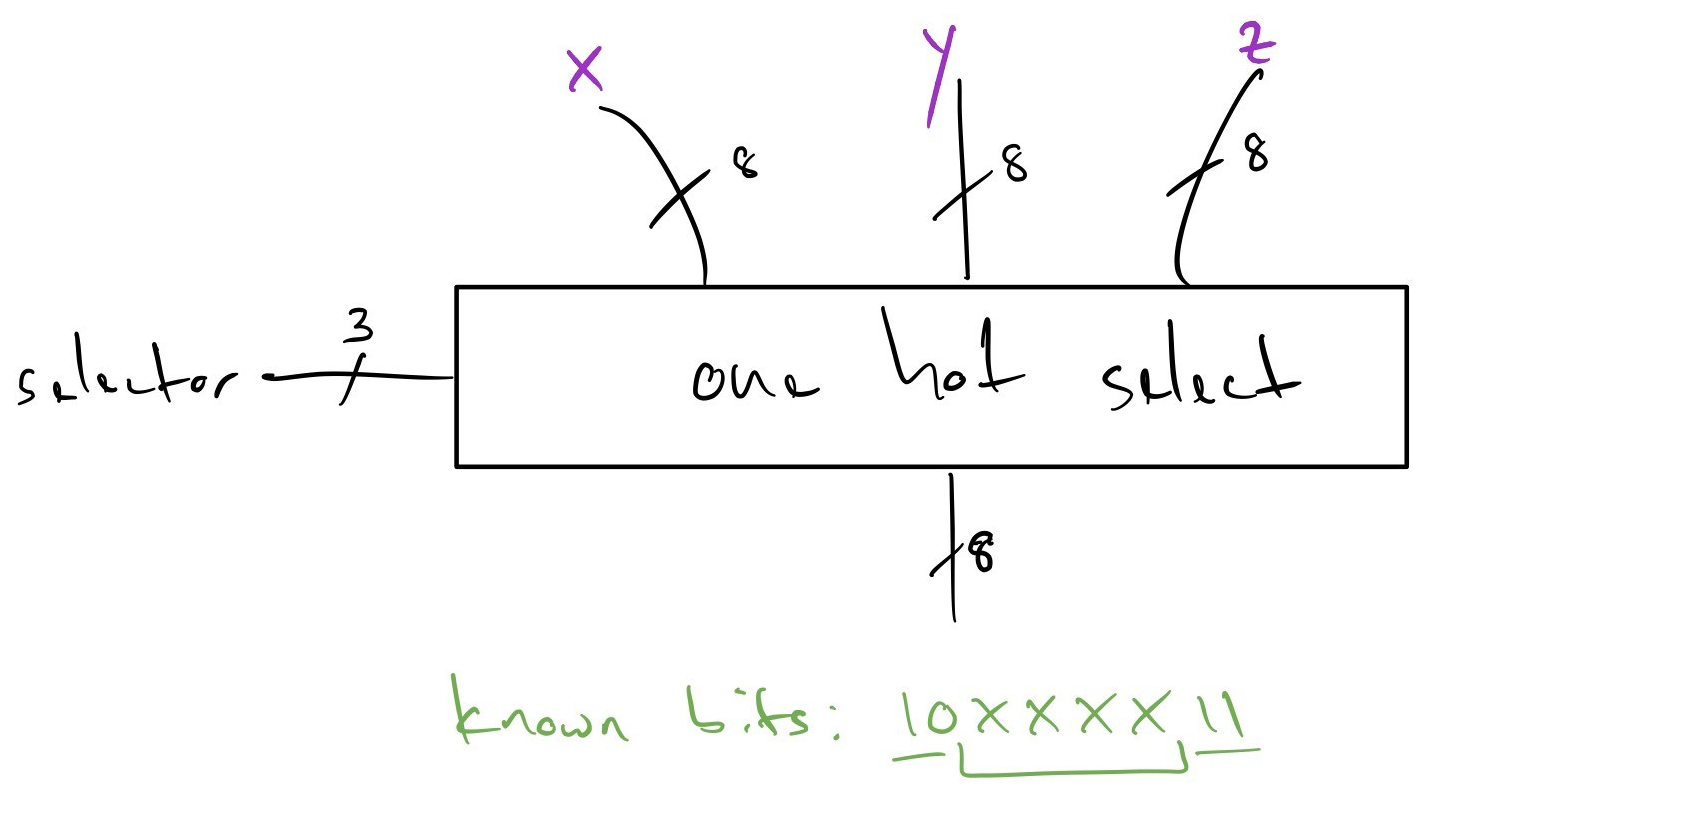 x y z
8 8 8
3
selector one hot select
8
known bits: 10XXXX11